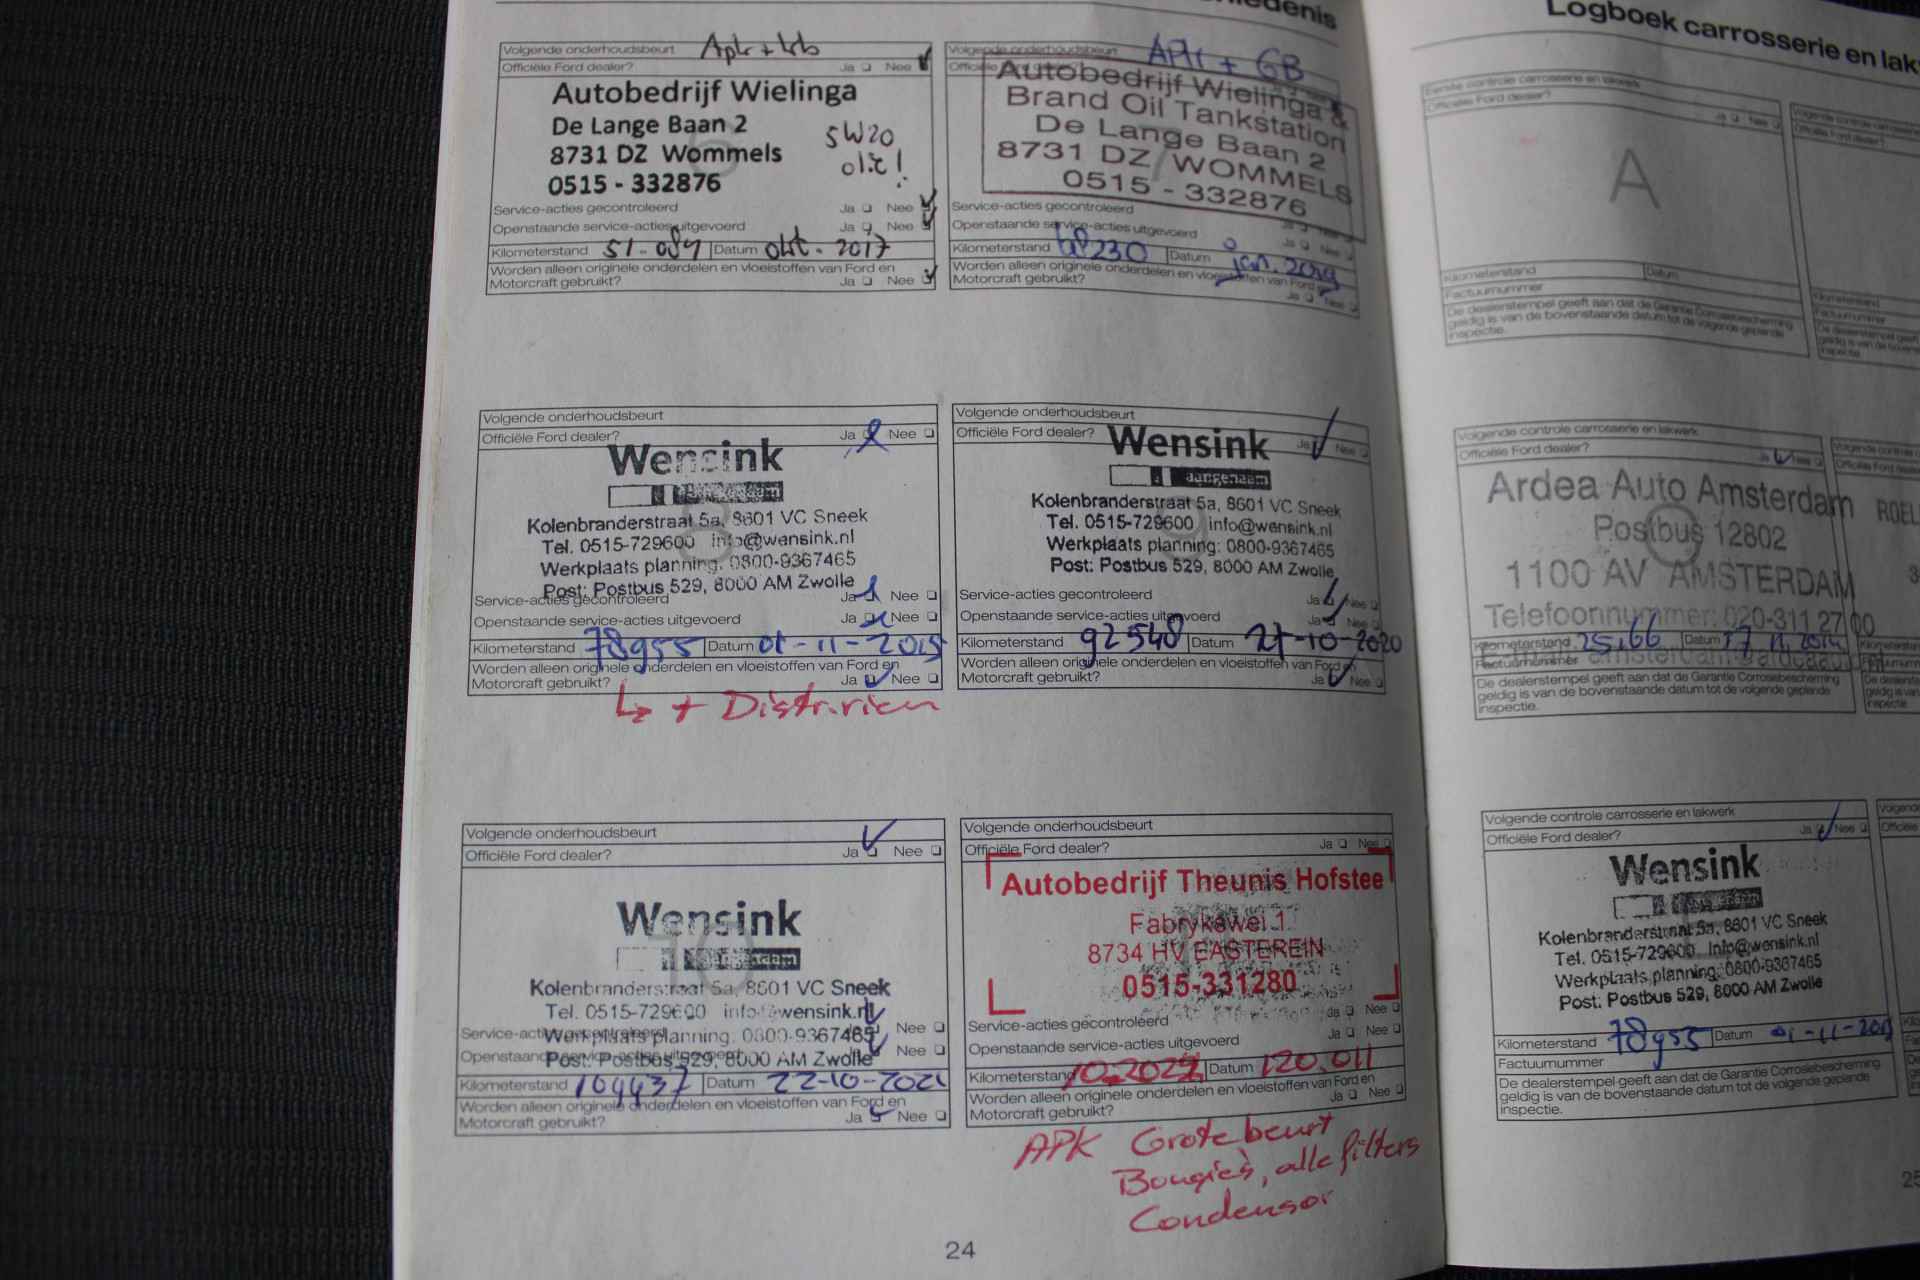 Volgende onderhoudsbeurt Apk + krb
Officiële Ford dealer? Ja Nee
Autobedrijf Wielinga
De Lange Baan 2
8731 DZ Wommels
0515 - 332876
5W20
olie!
Service-acties gecontroleerd Ja Nee
Openstaande service-acties uitgevoerd Ja Nee
Kilometerstand 51.089 Datum okt - 2017
Worden alleen originele onderdelen en vloeistoffen van Ford en
Motorcraft gebruikt? Ja Nee
Volgende onderhoudsbeurt APK + GB
Autobedrijf Wielinga &
Brand Oil Tankstation
De Lange Baan 2
8731 DZ WOMMELS
0515 - 332876
Service-acties gecontroleerd
Openstaande service-acties uitgevoerd Ja Nee
Kilometerstand 68230 Datum jan. 2019
Worden alleen originele onderdelen en vloeistoffen van Ford
Motorcraft gebruikt? Ja Nee
Volgende onderhoudsbeurt
Officiële Ford dealer? Ja Nee
Wensink
aangenaam
Kolenbranderstraat 5a, 8601 VC Sneek
Tel. 0515-729600 info@wensink.nl
Werkplaats planning: 0800-9367465
Post: Postbus 529, 8000 AM Zwolle
8
Service-acties gecontroleerd Ja Nee
Openstaande service-acties uitgevoerd Ja Nee
Kilometerstand 78955 Datum 01-11-2019
Worden alleen originele onderdelen en vloeistoffen van Ford en
Motorcraft gebruikt? Ja Nee
+ Distr.riem
Volgende onderhoudsbeurt
Officiële Ford dealer? Ja Nee
Wensink
aangenaam
Kolenbranderstraat 5a, 8601 VC Sneek
Tel. 0515-729600 info@wensink.nl
Werkplaats planning: 0800-9367465
Post: Postbus 529, 8000 AM Zwolle
9
Service-acties gecontroleerd Ja Nee
Openstaande service-acties uitgevoerd Ja Nee
Kilometerstand 92548 Datum 27-10-2020
Worden alleen originele onderdelen en vloeistoffen van Ford en
Motorcraft gebruikt? Ja Nee
Volgende onderhoudsbeurt
Officiële Ford dealer? Ja Nee
Wensink
aangenaam
Kolenbranderstraat 5a, 8601 VC Sneek
Tel. 0515-729600 info@wensink.nl
Werkplaats planning: 0800-9367465
Post: Postbus 529, 8000 AM Zwolle
10
Service-acties gecontroleerd Nee
Openstaande service-acties uitgevoerd Nee
Kilometerstand 109437 Datum 22-10-2021
Worden alleen originele onderdelen en vloeistoffen van Ford en
Motorcraft gebruikt? Ja Nee
Volgende onderhoudsbeurt
Officiële Ford dealer? Ja Nee
Autobedrijf Theunis Hofstee
Fabrykswei 1
8734 HV EASTEREIN
0515-331280
Service-acties gecontroleerd Ja Nee
Openstaande service-acties uitgevoerd Ja Nee
Kilometerstand Datum 120.011
Worden alleen originele onderdelen en vloeistoffen van Ford en
Motorcraft gebruikt? Ja Nee
APK Grote beurt
Bougies, alle filters
Condensor
24
Logboek carrosserie en lak
Eerste controle carrosserie en lakwerk
Officiële Ford dealer? Ja Nee
A
Kilometerstand Datum
Factuurnummer
De dealerstempel geeft aan dat de Garantie Corrosiebescherming
geldig is van de bovenstaande datum tot de volgende geplande
inspectie.
Volgende controle carrosserie en lakwerk
Officiële Ford dealer? Ja Nee
Ardea Auto Amsterdam
Postbus 12802
1100 AV AMSTERDAM
Telefoonnummer: 020-311 27 00
Kilometerstand 25,66 Datum
Factuurnummer
De dealerstempel geeft aan dat de Garantie Corrosiebescherming
geldig is van de bovenstaande datum tot de volgende geplande
inspectie.
Volgende controle carrosserie en lakwerk
Officiële Ford dealer? Ja Nee
Wensink
Kolenbranderstraat 5a, 8601 VC Sneek
Tel. 0515-729600 info@wensink.nl
Werkplaats planning: 0800-9367465
Post: Postbus 529, 8000 AM Zwolle
Kilometerstand 78955 Datum 01-11-2019
Factuurnummer
De dealerstempel geeft aan dat de Garantie Corrosiebescherming
geldig is van de bovenstaande datum tot de volgende geplande
inspectie.
ROEL
25